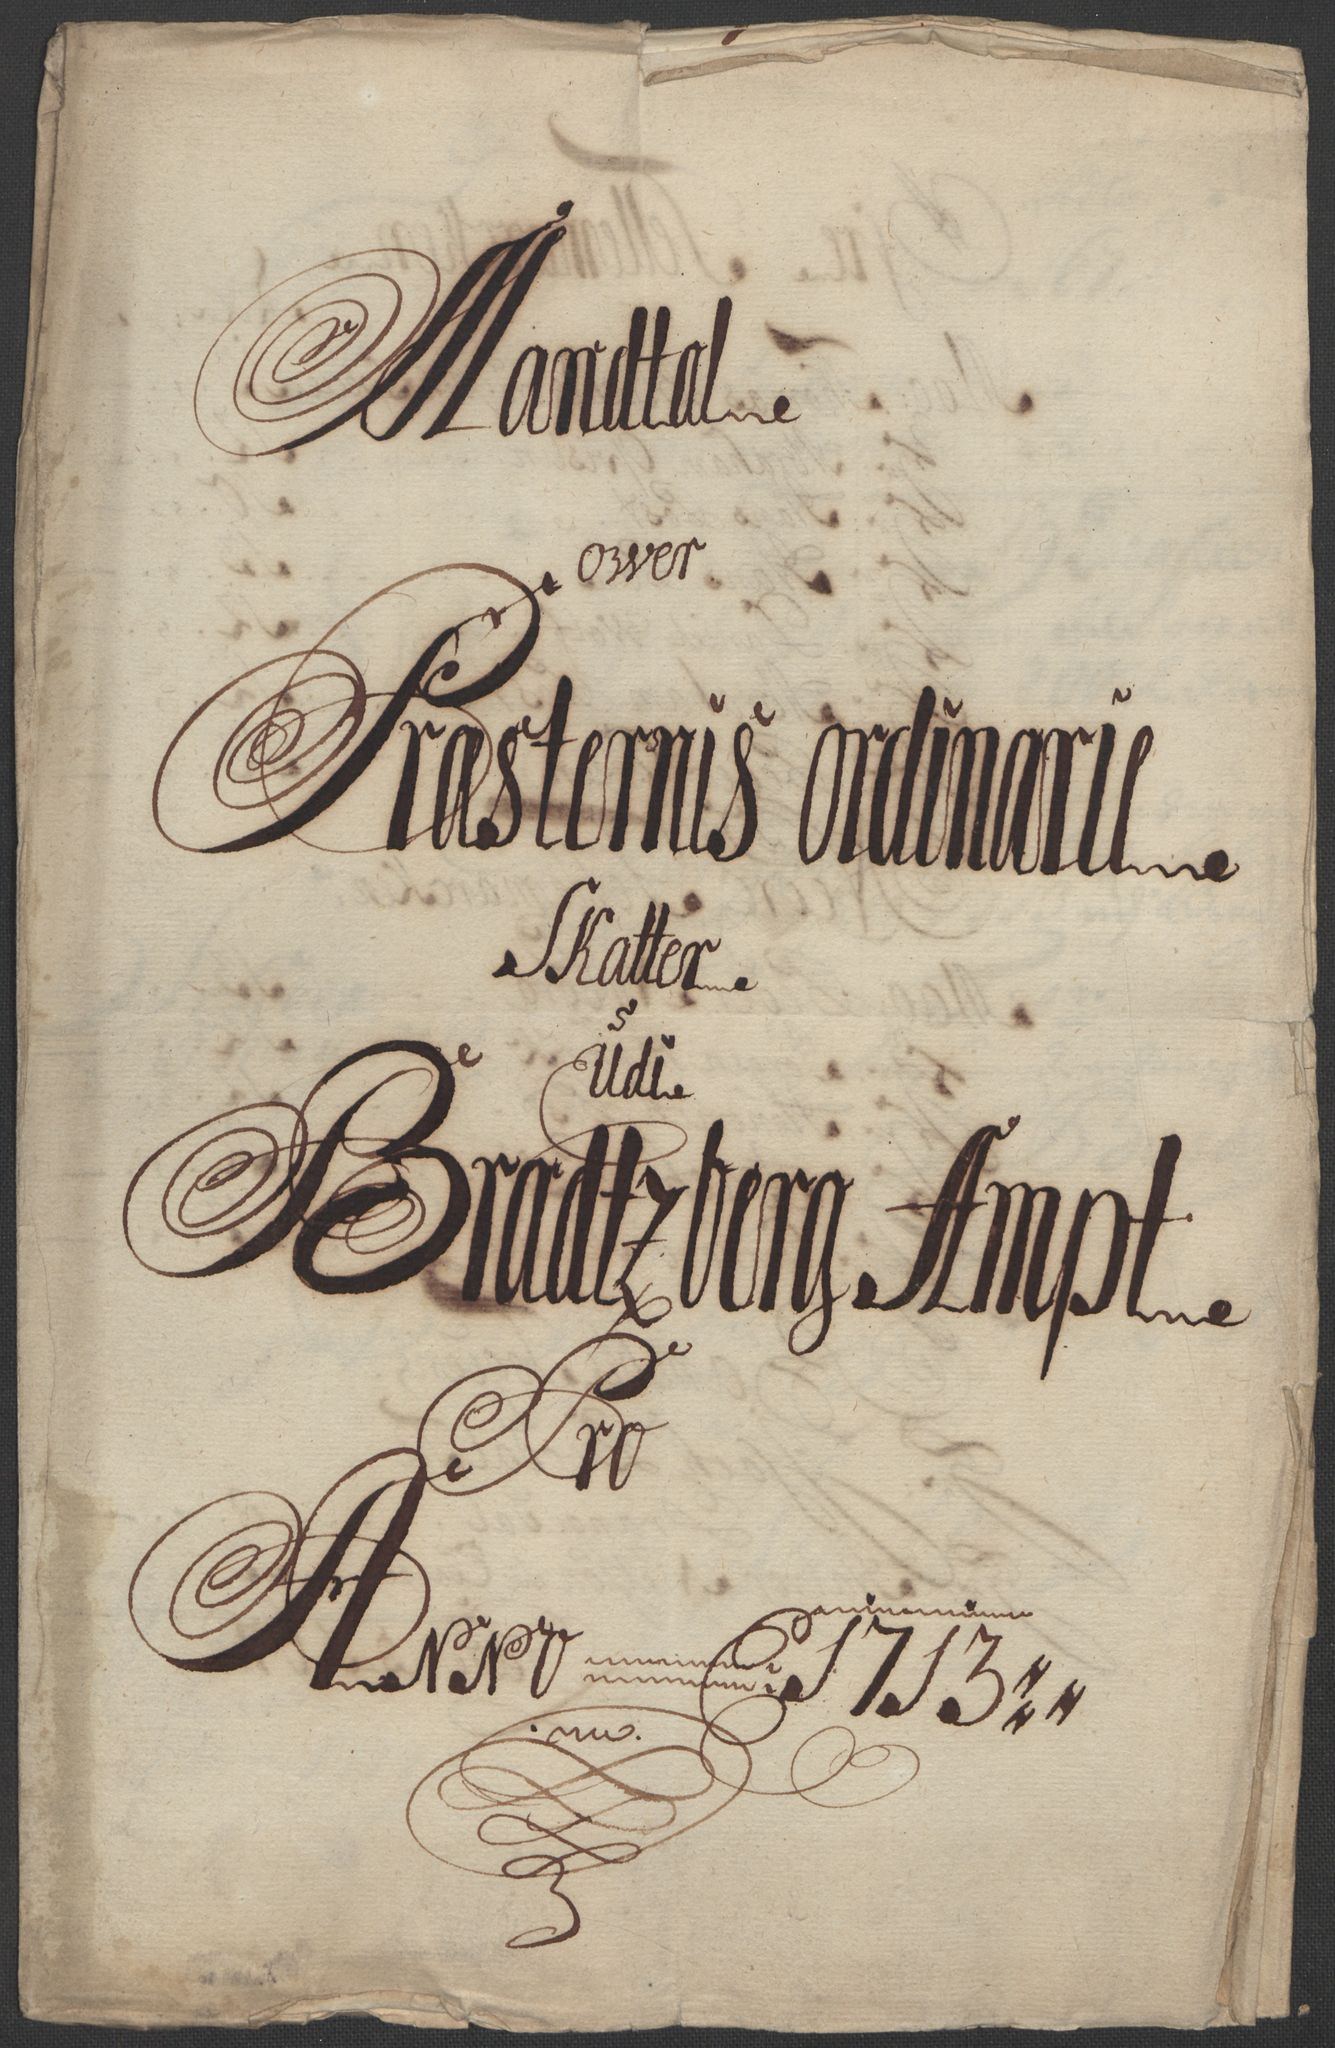 Mandtal
over
Præsternis ordinarie
Skatter
Udi
Bradtzberg Ampt
Pro
ANNO 1713